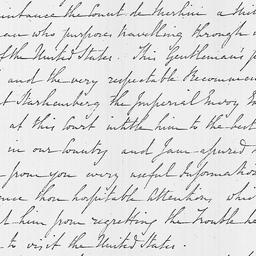 the Count de
who purposes travelling through
of the United States. This Gentleman's
and the very respectable
Starhemberg the Imperial Envoy
at this Court intitle him to the best
in our Country and I am assured
from you every useful Information
those hospitable Attentions which
him from regretting the Trouble he
to visit the United States.